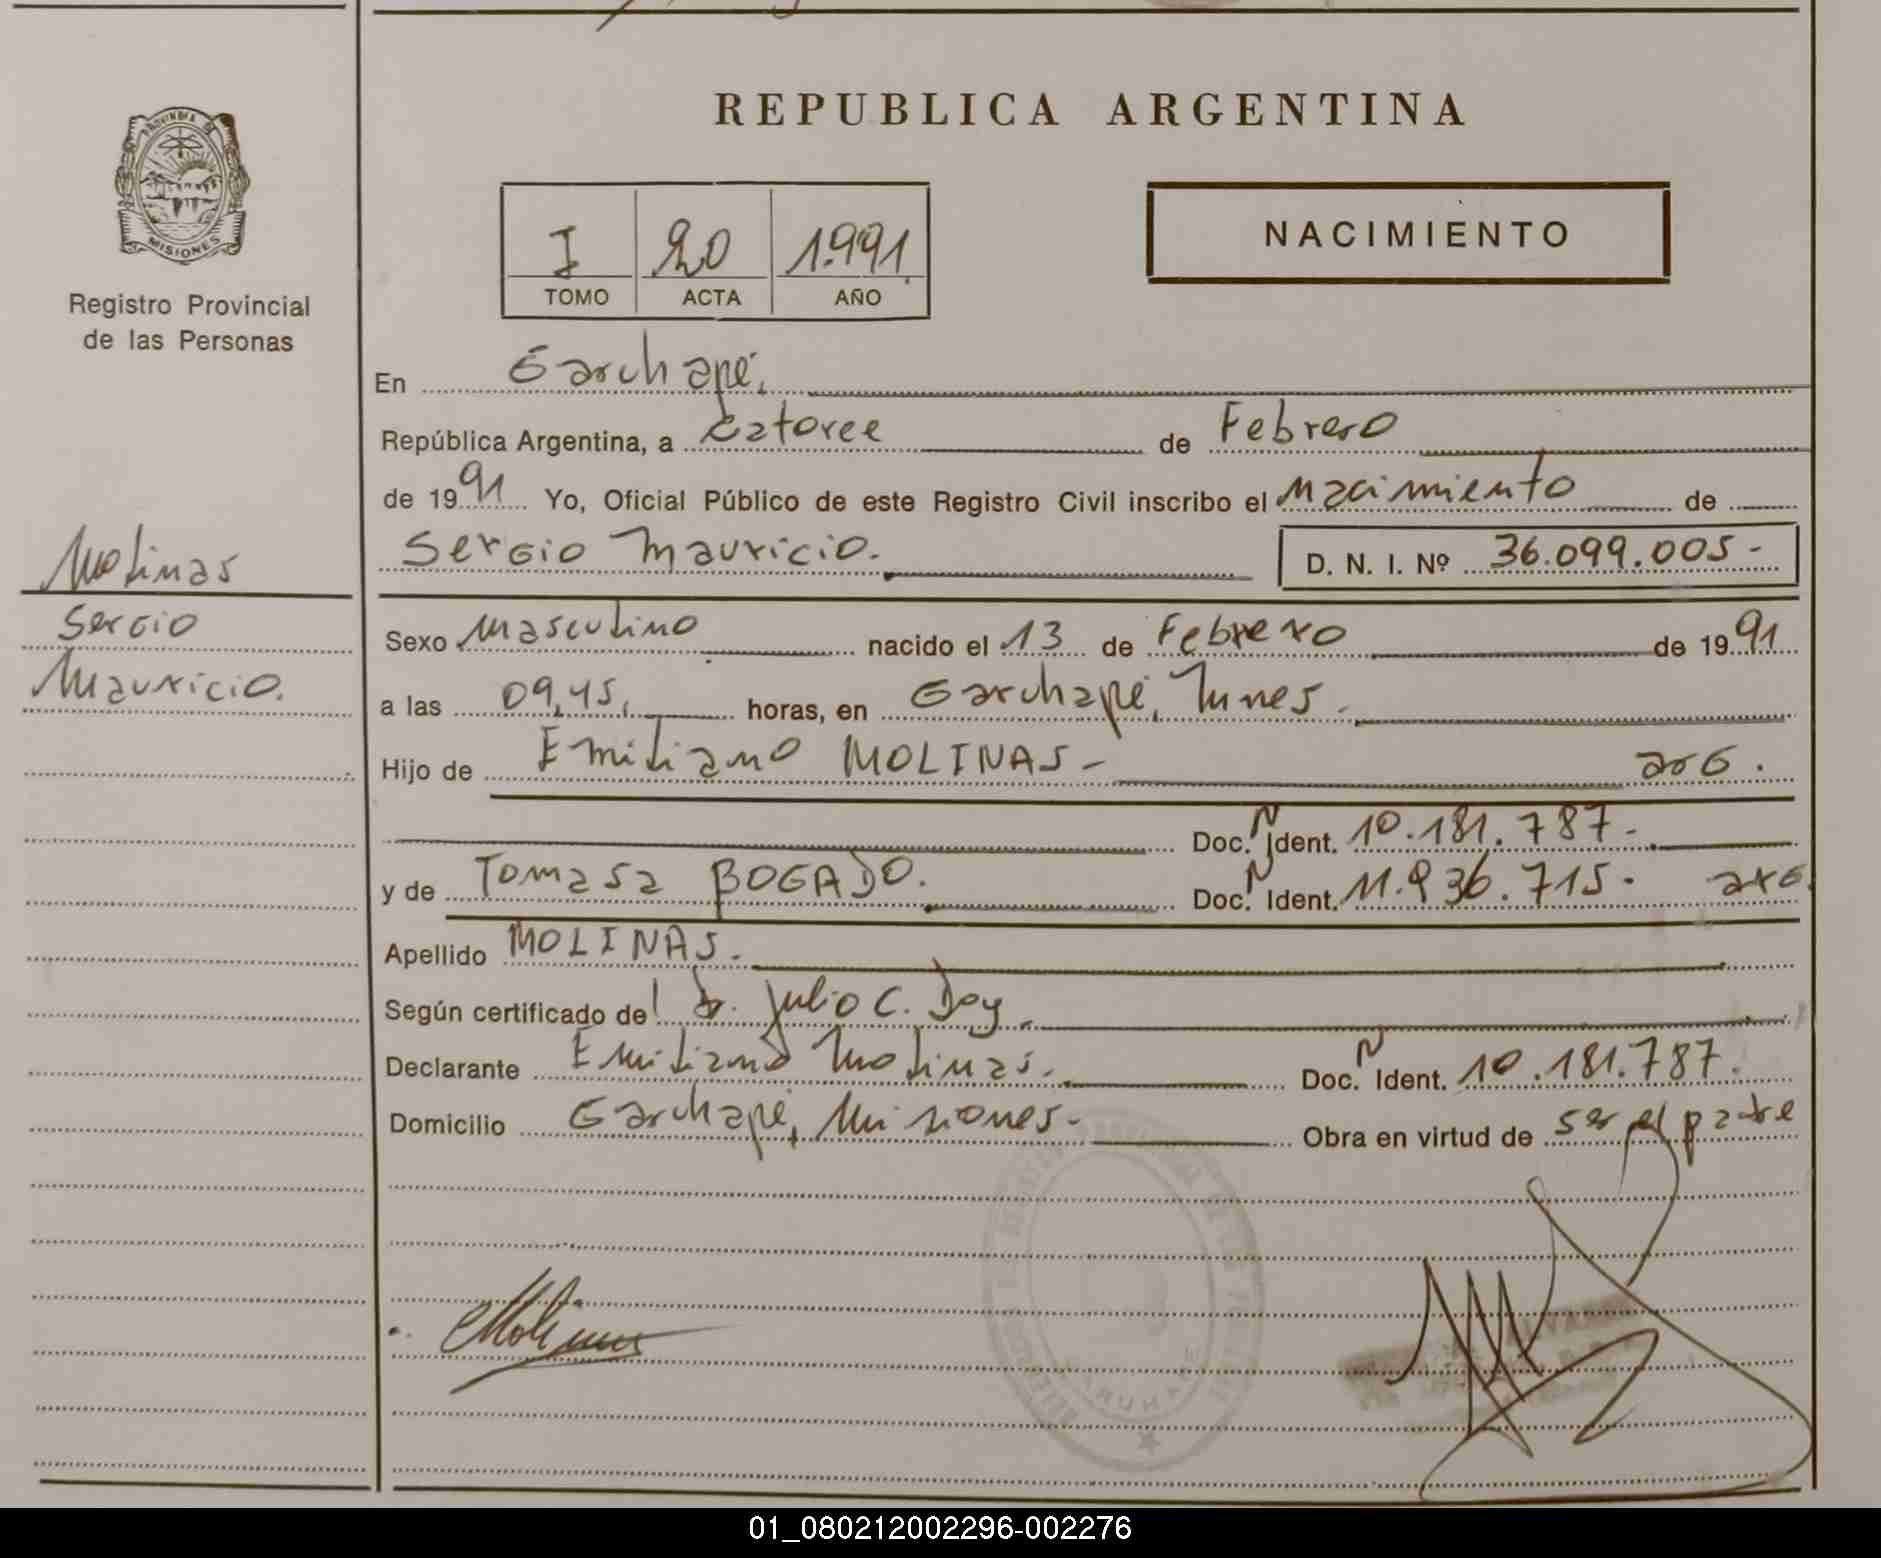 REPUBLICA ARGENTINA
PROVINCIA DE
MISIONES
Registro Provincial
de las Personas
I 20 1.991
TOMO ACTA AÑO
NACIMIENTO
En Garuhapé,
República Argentina, a catorce de Febrero
de 1991 Yo, Oficial Público de este Registro Civil inscribo el nacimiento de
Sergio Mauricio. D. N. I. Nº 36.099.005-
Molinas
Sergio
Mauricio.
Sexo masculino nacido el 13 de Febrero de 1991
a las 09,45, horas, en Garuhapé, Mnes.
Hijo de Emiliano MOLINAS- arG.
Doc. N Ident. 10.181.787-
y de Tomasa BOGADO. Doc. N Ident. 11.936.715- arG.
Apellido MOLINAS.
Según certificado del Dr. Julio C. Doy
Declarante Emiliano Molinas. Doc. N Ident. 10.181.787.
Domicilio Garuhapé, Misiones- Obra en virtud de ser el padre
Molinas
01_080212002296-002276